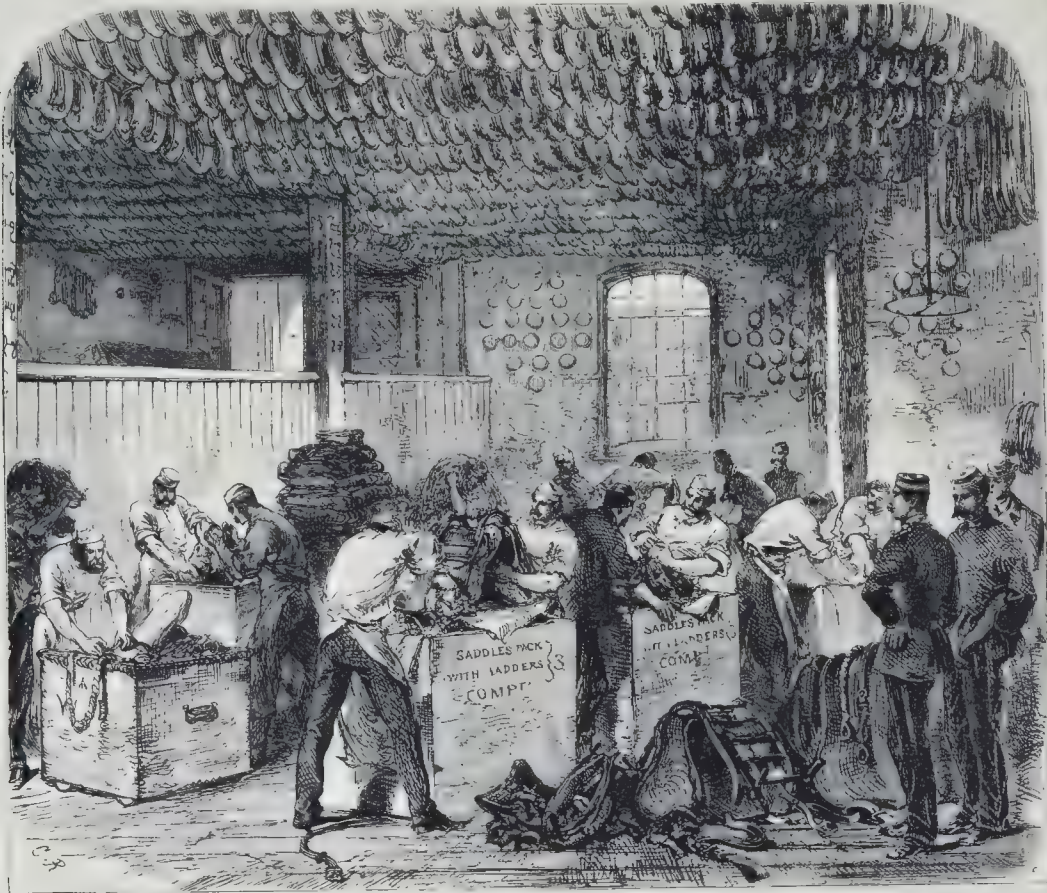 SADDLES PACK
WITH LADDERS } 3
COMPT.
SADDLES PACK
LADDERS }
COMPT